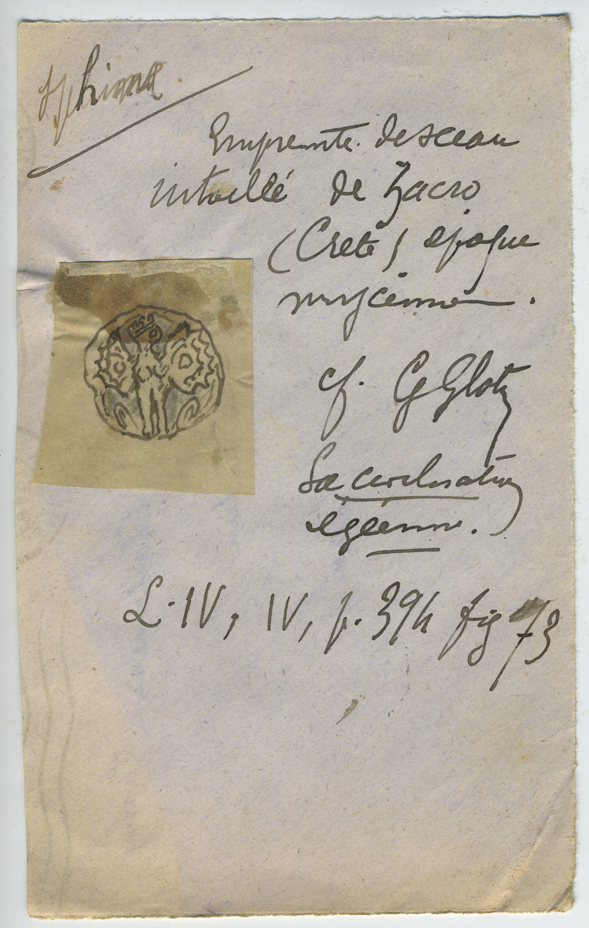 Sphinx
Empreinte de sceau
intaillé de Zacro
(Crète) époque
mycénienne.
cf. G Glotz
La civilisation
égéenne.
L. IV, IV, p. 394 fig 73